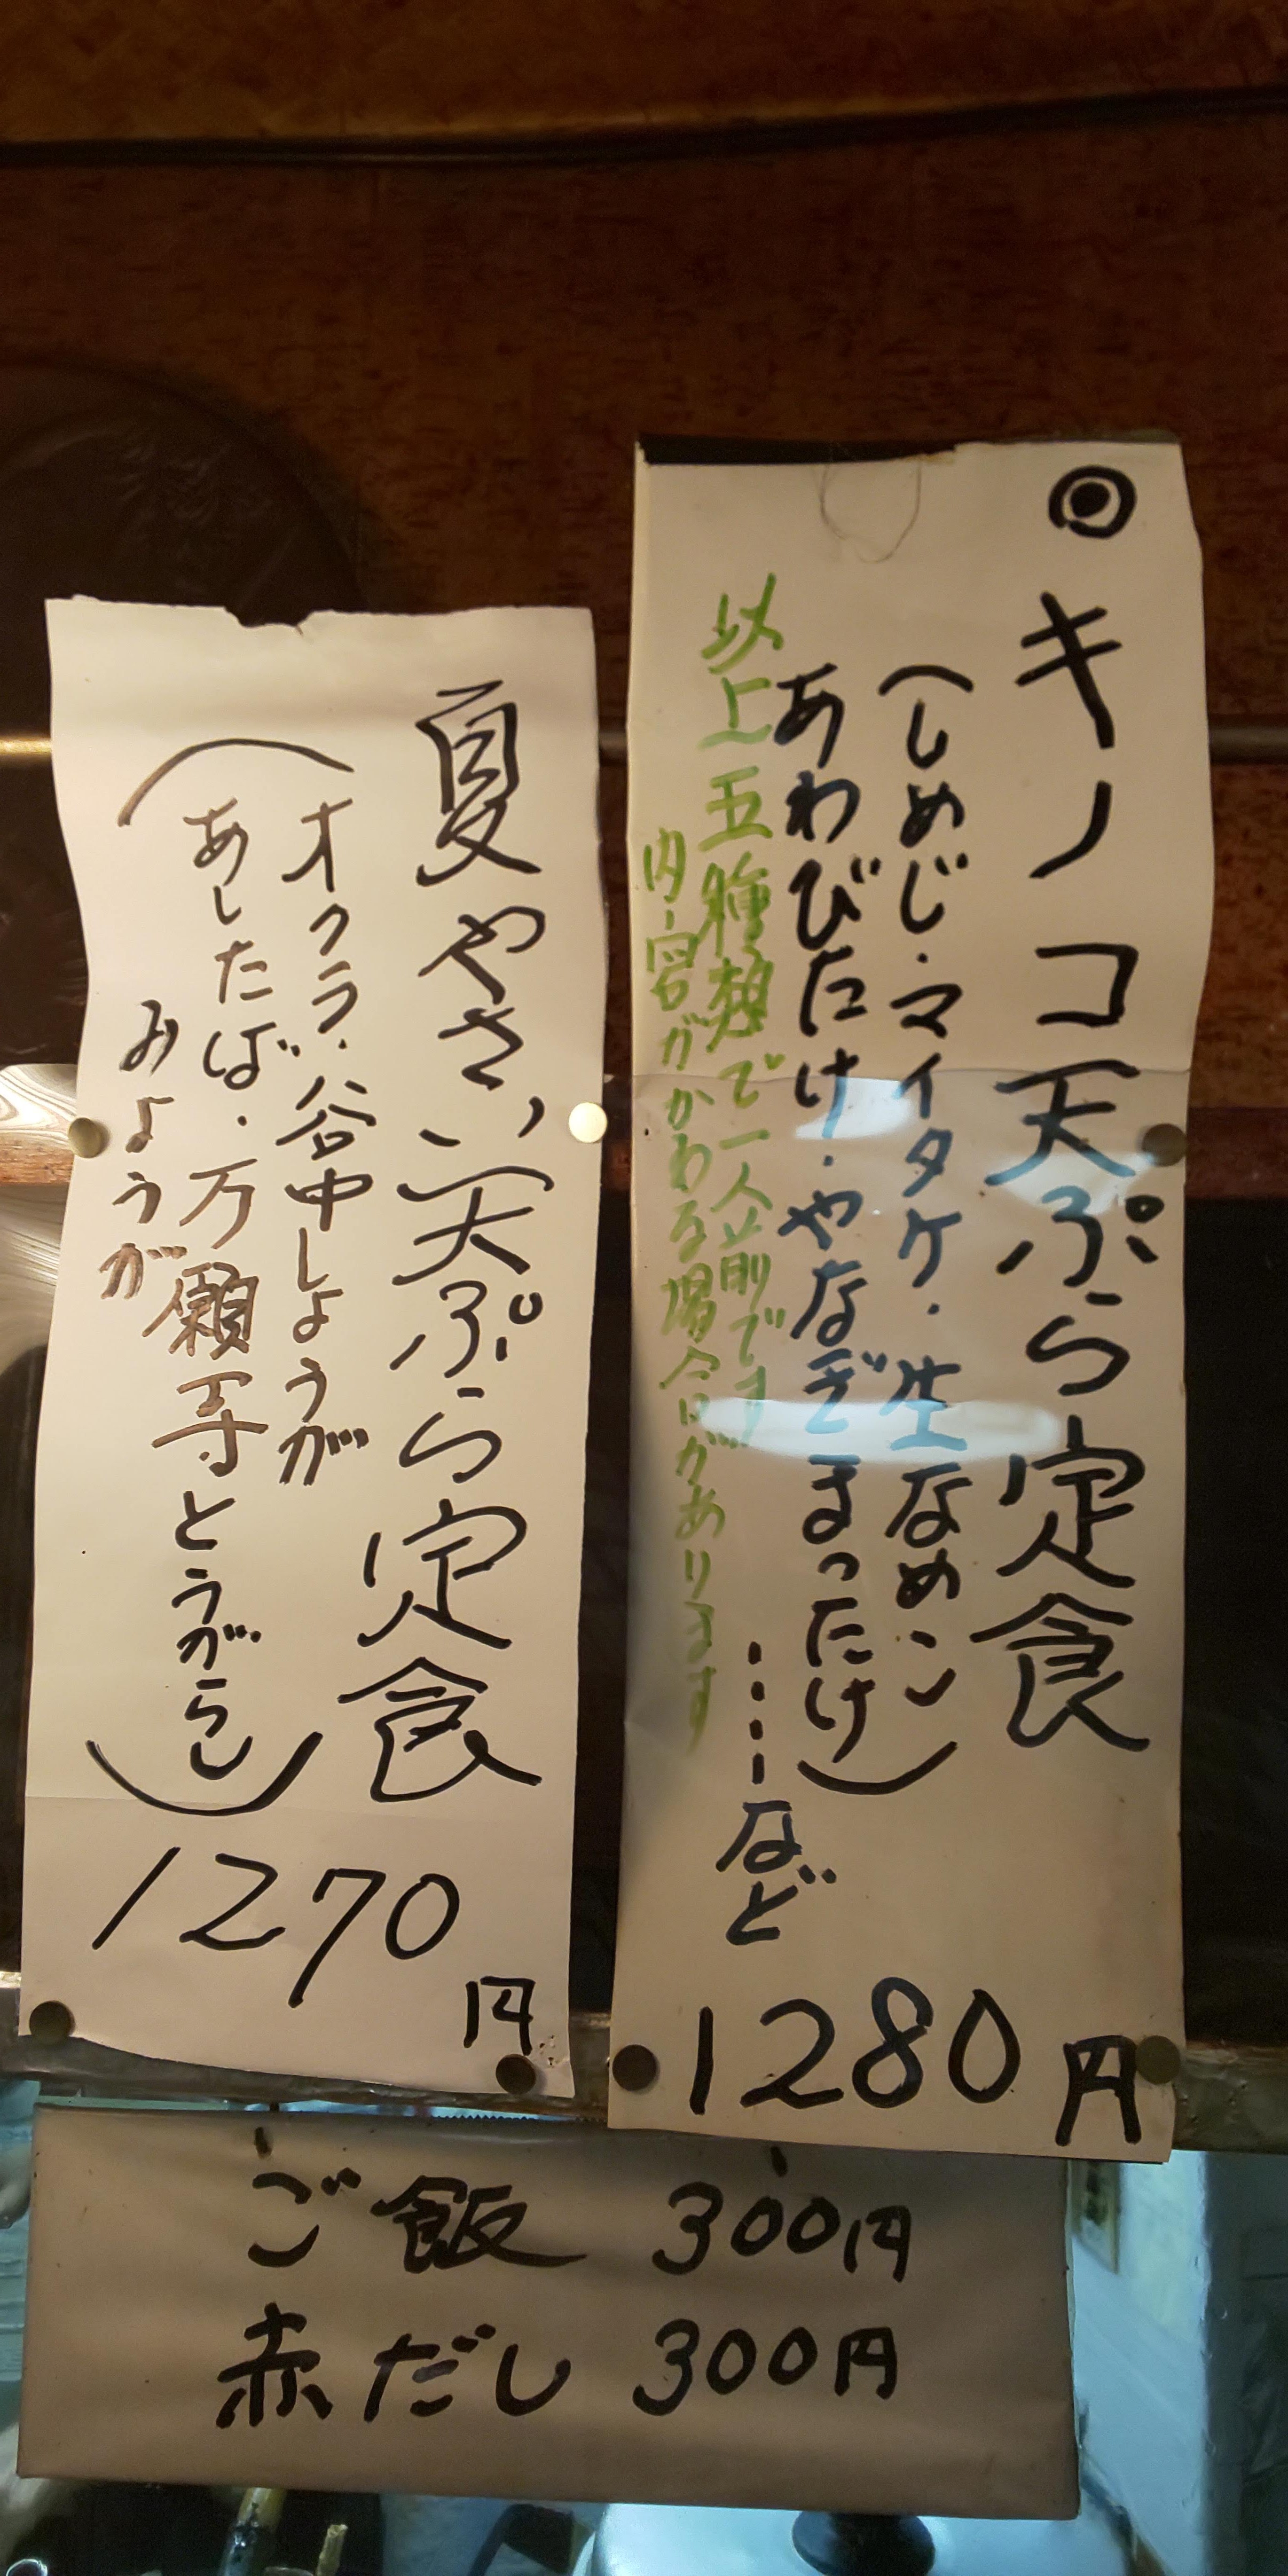 ◎キノコ天ぷら定食
(しめじ・マイタケ・生なめこ
あわびたけ・やなぎまったけ)
……など
以上五種類で一人前です
内容がかわる場合があります
1280円
夏やさい天ぷら定食
(オクラ・谷中しょうが
あしたば・万願寺とうがらし
みょうが)
1270円
ご飯 300円
赤だし 300円